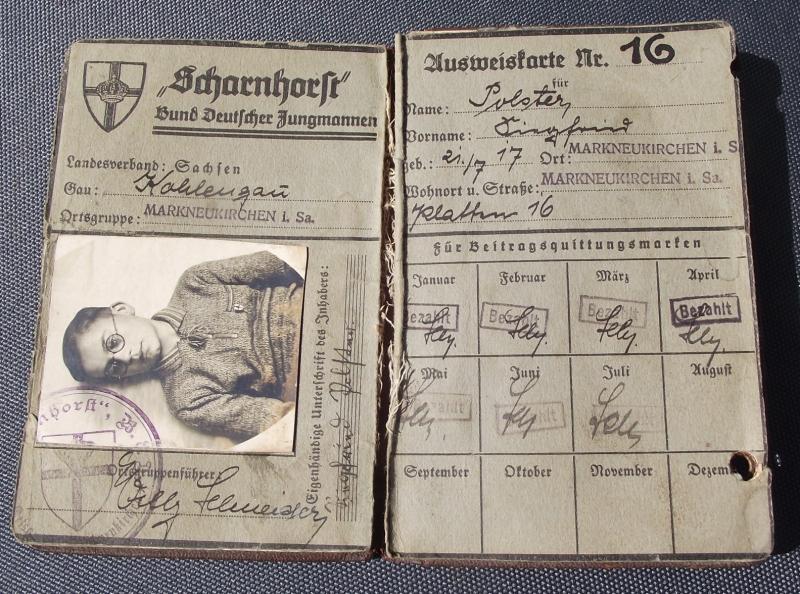 „Scharnhorst"
Bund Deutscher Jungmannen
Landesverband: Sachsen
Gau: Kohlengau
Ortsgruppe: MARKNEUKIRCHEN i. Sa.
Eigenhändige Unterschrift des Inhabers:
Siegfried Polster
Ortsgruppenführer
Willy Schneider
Ausweiskarte Nr. 16
für
Name: Polster
Vorname: Siegfried
geb.: 21./7 17 Ort: MARKNEUKIRCHEN i. S
Wohnort u. Straße: MARKNEUKIRCHEN i. Sa.
Klatten 16
Für Beitragsquittungsmarken
Januar Februar März April
Bezahlt Bezahlt Bezahlt Bezahlt
Mai Juni Juli August
September Oktober November Dezem